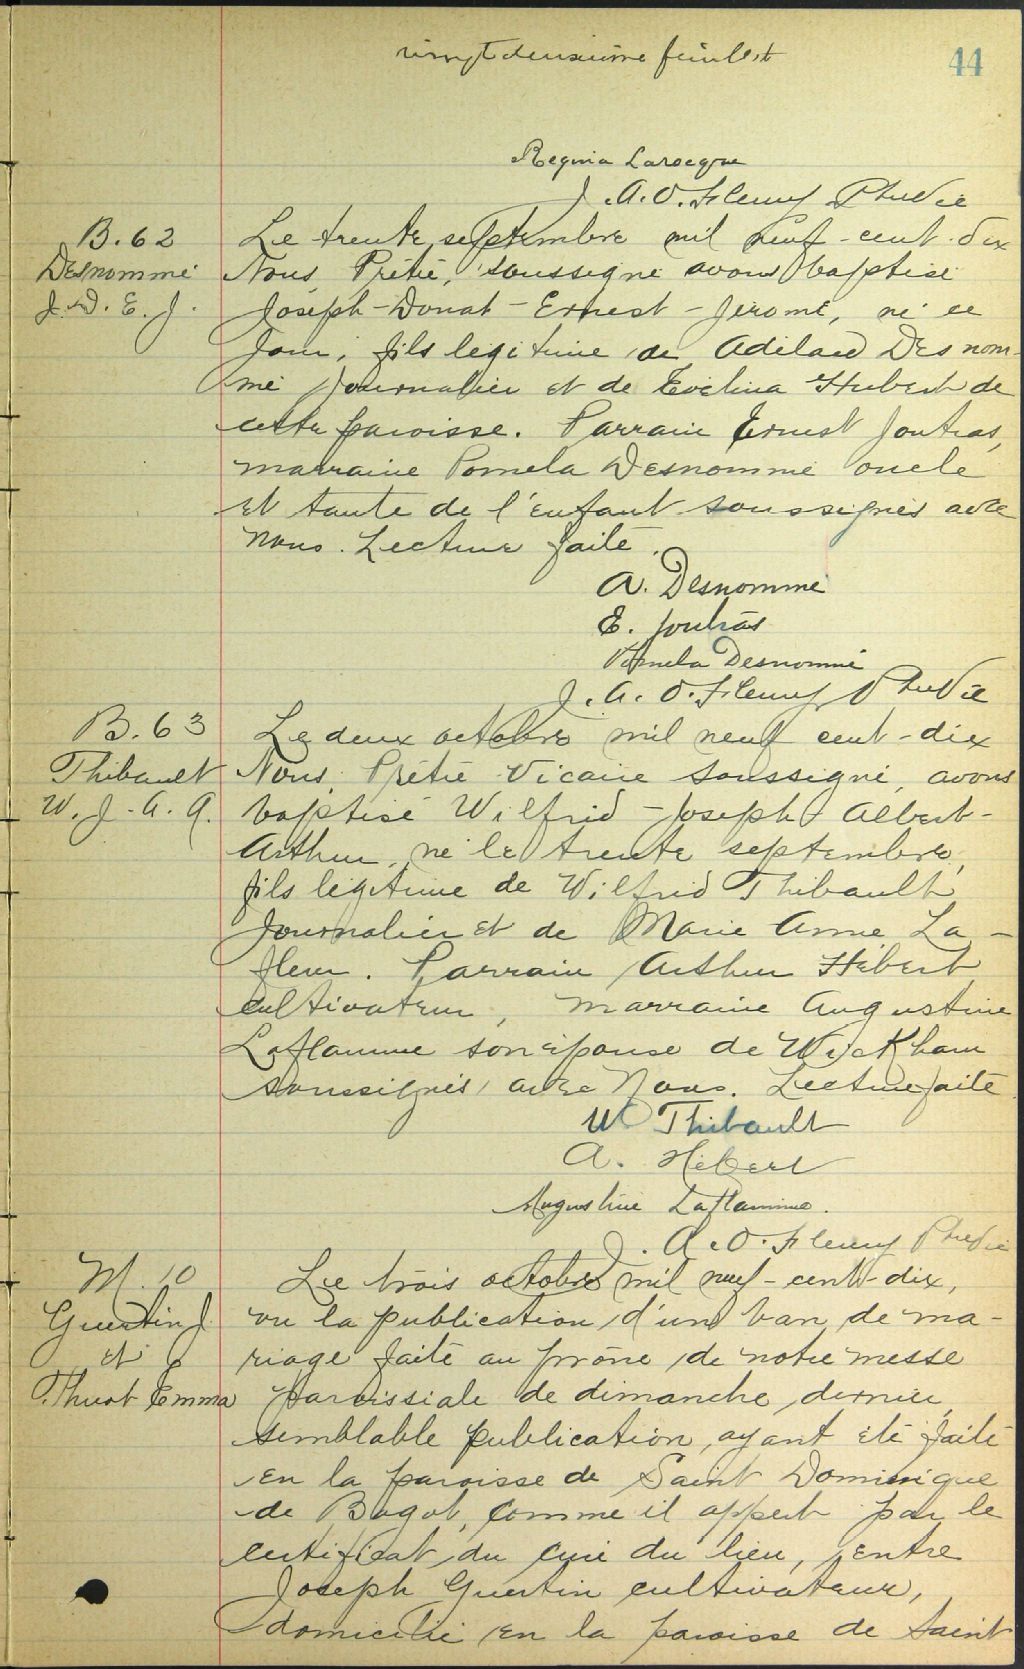 vingt deuxième feuillet
44
Regina Larocque
J. A. O. Fleury Ptre Vic
B. 62
Desnomme
J. D. E. J.
Le trente septembre mil neuf-cent-dix
Nous, Prêtre, soussigné avons baptisé
Joseph-Donat-Ernest-Jérome, né ce
jour, fils légitime de Adélard Desnom-
mé journalier et de Evelina Hubert de
cette paroisse. Parrain Ernest Joutras,
marraine Pomela Desnomme oncle
et tante de l'enfant soussignés avec
nous. Lecture faite.
A. Desnomme
E. Joutras
Pomela Desnommé
J. A. O. Fleury Ptre Vic
B. 63
Thibault
W. J. A. A.
Le deux octobre mil neuf cent-dix
Nous, Prêtre Vicaire soussigné, avons
baptisé Wilfrid-Joseph Albert-
Arthur, né le trente septembre,
fils légitime de Wilfrid Thibault
journalier et de Marie Anne La-
fleur. Parrain Arthur Hébert
cultivateur, marraine Augustine
Laflamme son épouse de Wickham
soussignés avec Nous. Lecture faite
W Thibault
A. Hébert
Augustine Laflamme.
J. A. O. Fleury Ptre Vic
M. 10
Guertin J.
et
Thuot Emma
Le trois octobre mil neuf-cent-dix,
vu la publication d'un ban de ma-
riage faite au prône de notre messe
paroissiale de dimanche dernier,
semblable publication ayant été faite
en la paroisse de Saint Dominique
de Bagot, comme il appert par le
certificat du curé du lieu, entre
Joseph Guertin cultivateur,
domicilié en la paroisse de Saint